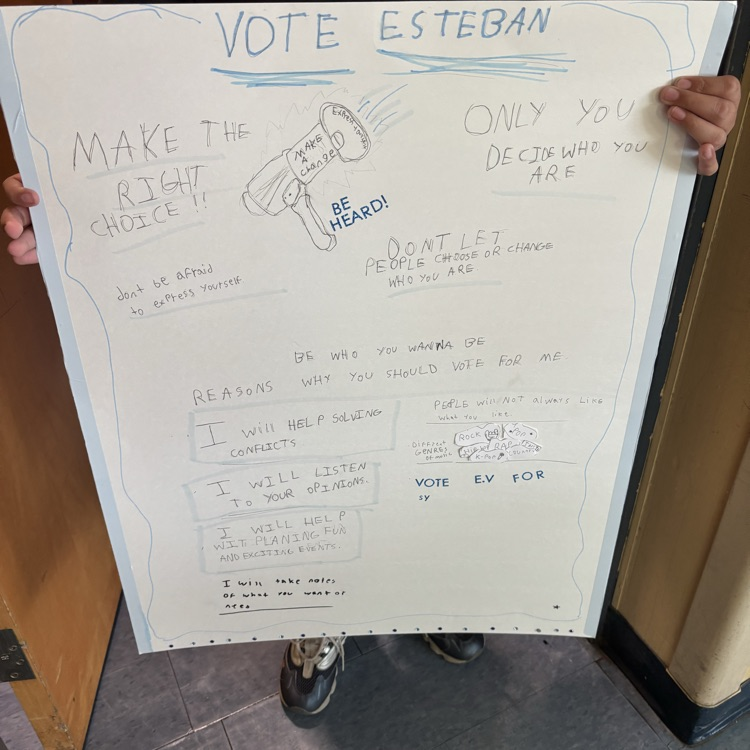 VOTE ESTEBAN
MAKE THE
RIGHT
CHOICE !!
MAKE
A
change
BE
HEARD!
ONLY YOU
DECIDE WHO YOU
ARE
DONT LET
PEOPLE CHOOSE OR CHANGE
WHO YOU ARE
dont be afraid
to express yourself
BE WHO YOU WANNA BE
REASONS WHY YOU SHOULD VOTE FOR ME
I will HELP SOLVING
CONFLICTS
I WILL LISTEN
TO YOUR OPINIONS.
I WILL HELP
WIT PLANING FUN
AND EXCITING EVENTS.
I will take notes
of what you want or
need
PEOPLE will NOT always like
what you like.
Different
GENRES
of music
ROCK
RAP
K-POP
VOTE E.V FOR
sy